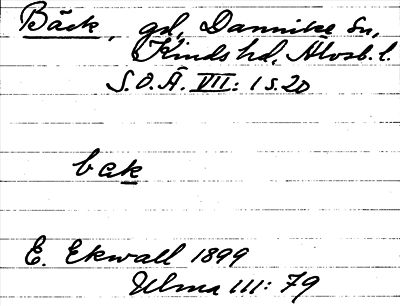 Bäck, gd, Dannike sn,
Kinds hd, Älvsb. l.
S.O.Ä. VII: 1 s. 20
bak
E. Ekwall 1899
Ulma 111: 79